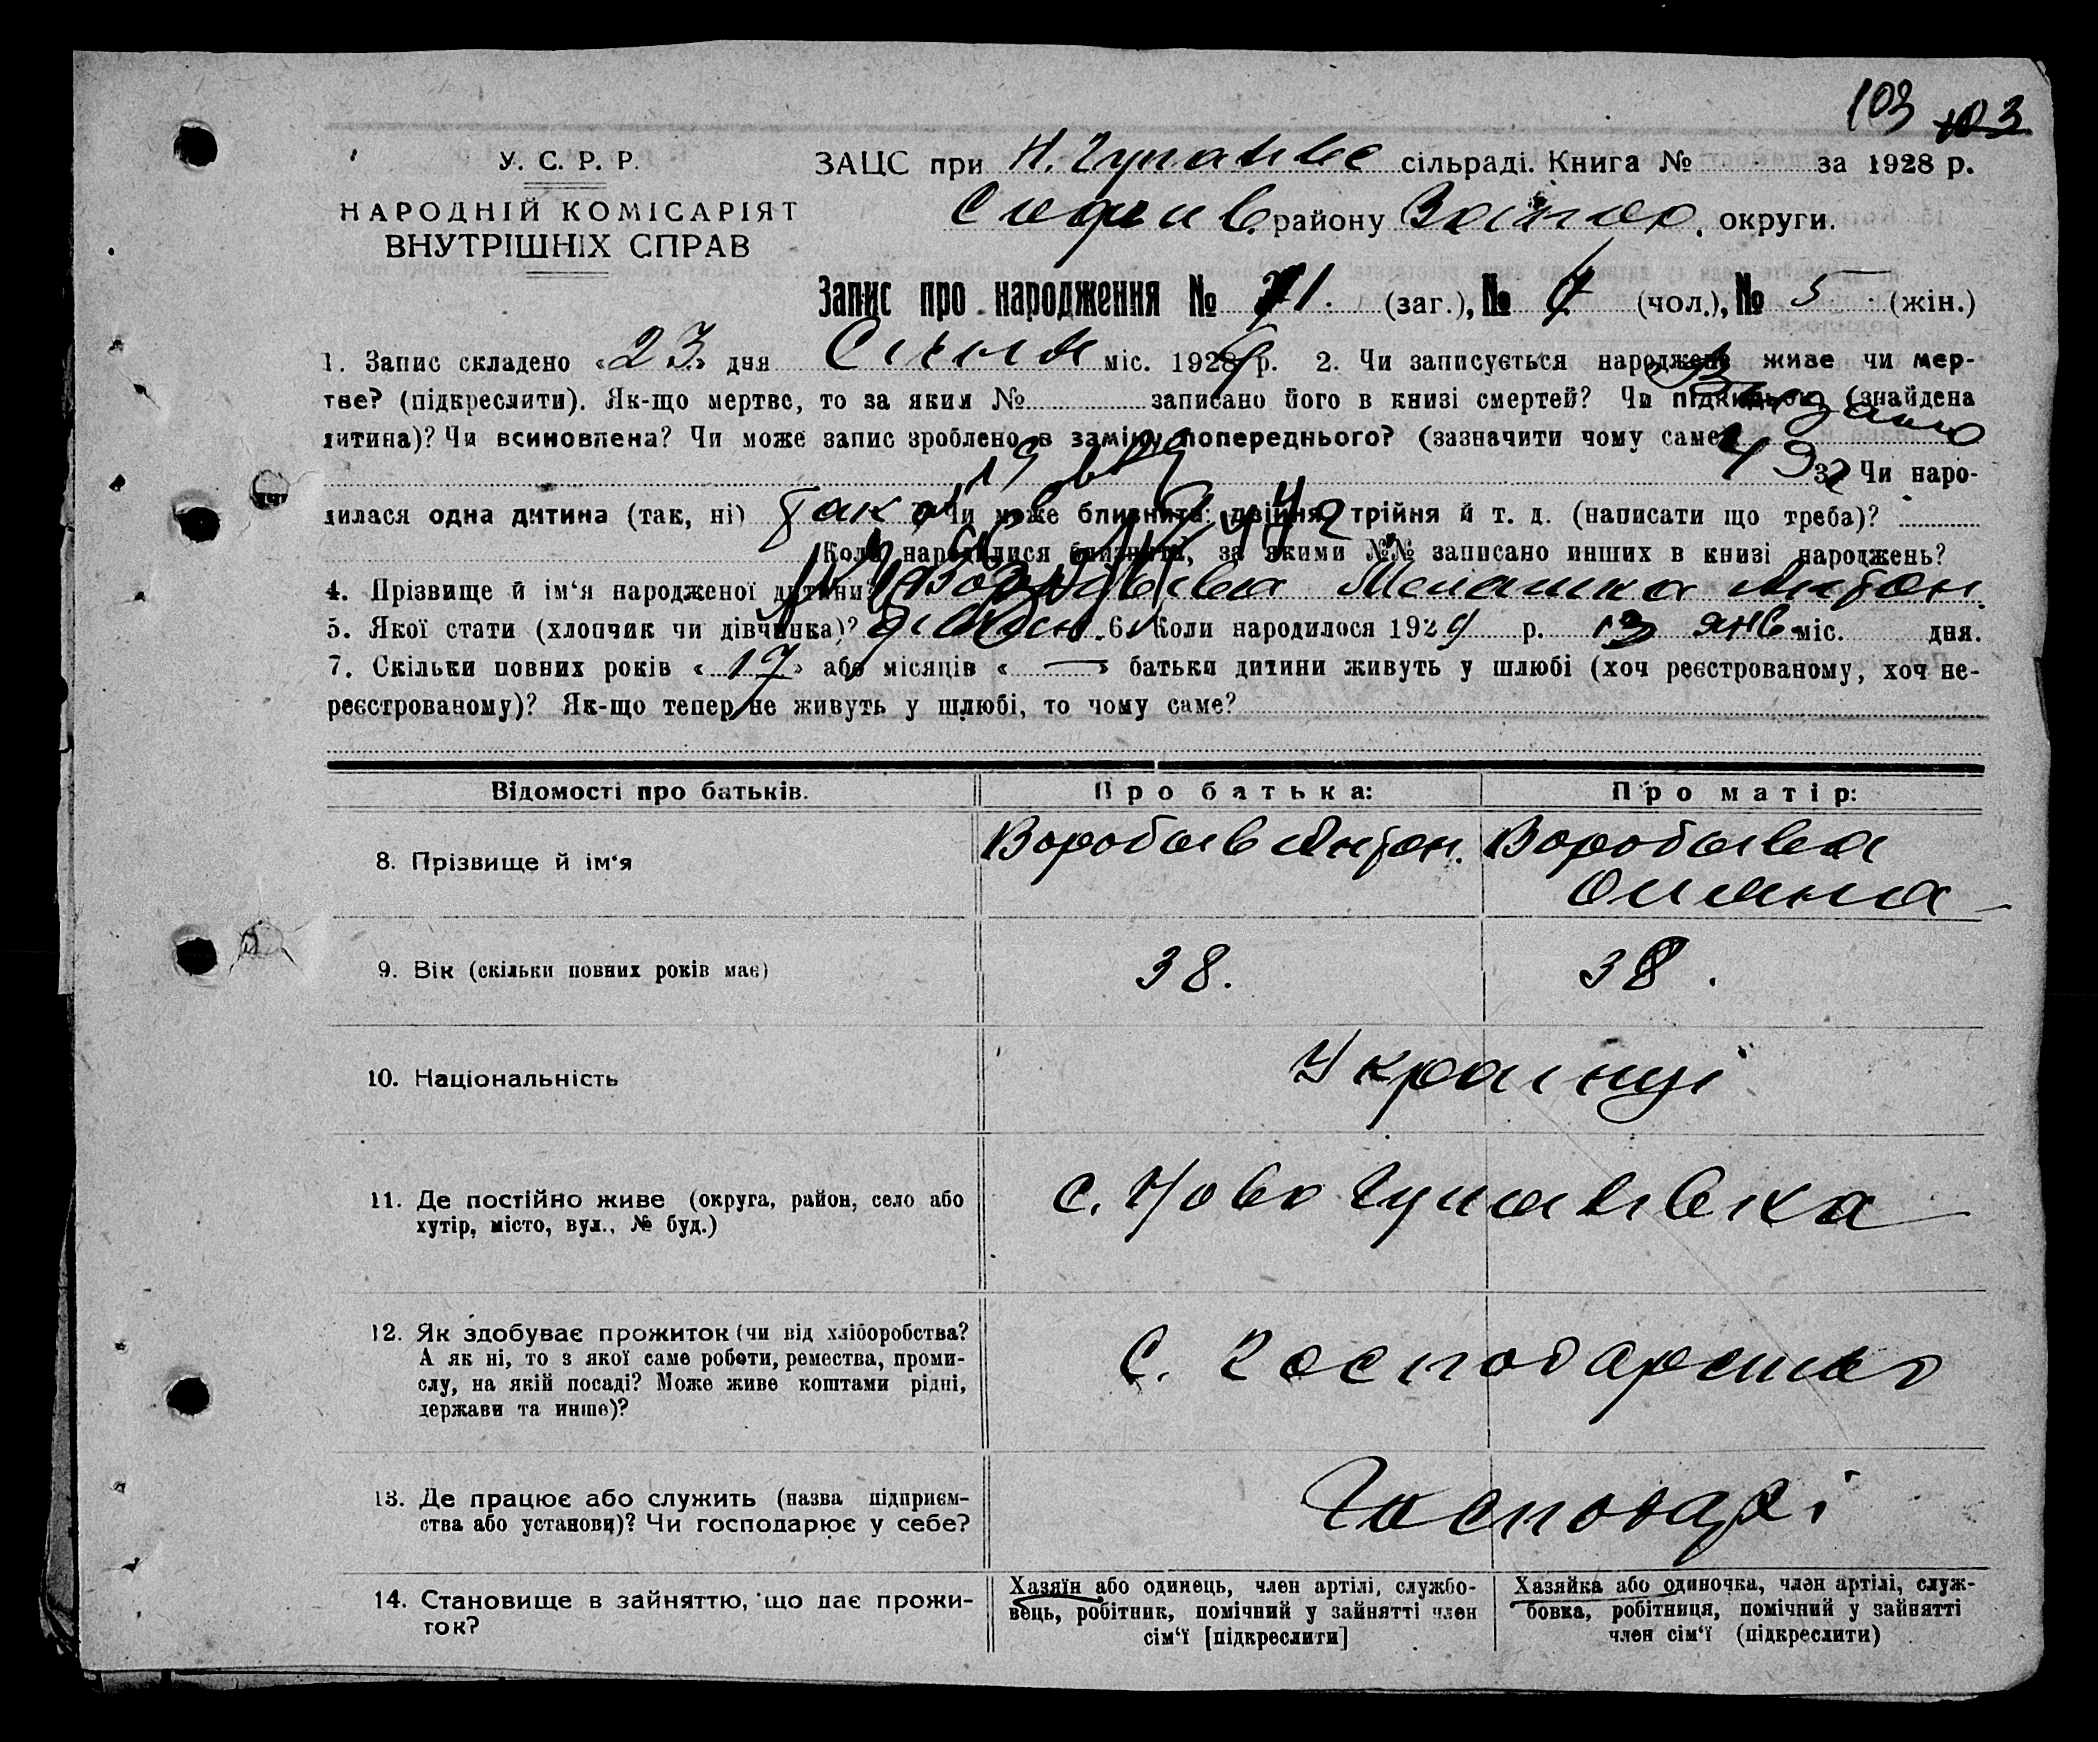 103 103
У. С. Р. Р.
НАРОДНІЙ КОМІСАРІЯТ
ВНУТРІШНІХ СПРАВ
ЗАЦС при сільраді. Книга № за 1928 р.
району округи.
Запис про народження № (заг.), № (чол.), № 5 (жін.)
1. Запис складено «23» дня Січня міс. 1929 р. 2. Чи записується народжене живе чи мер-
тве? (підкреслити). Як-що мертве, то за яким № записано його в книзі смертей? Чи підкидьок (знайдена
дитина)? Чи всиновлена? Чи може запис зроблено в заміну попереднього? (зазначити чому саме)
3. Чи наро-
дилася одна дитина (так, ні) так Чи може близнята: двійня, трійня й т. д. (написати що треба)?
Коли народилися близнята, за якими №№ записано инших в книзі народжень?
4. Прізвище й ім‘я народженої дитини? Воробьева Мелашка Антон.
5. Якої стати (хлопчик чи дівчинка)? 6. Коли народилося 1929 р. 13 янв міс. дня.
7. Скільки повних років «17» або місяців «—» батьки дитини живуть у шлюбі (хоч реєстрованому, хоч не-
реєстрованому)? Як-що тепер не живуть у шлюбі, то чому саме?
Відомості про батьків. Про батька: Про матір:
8. Прізвище й ім‘я Воробьев Антон. Воробьева
Оляна
9. Вік (скільки повних років має) 38. 38.
10. Національність Українці
11. Де постійно живе (округа, район, село або
хутір, місто, вул., № буд.)
с. Ново
12. Як здобуває прожиток (чи від хліборобства?
А як ні, то з якої саме роботи, ремества, проми-
слу, на якій посаді? Може живе коштами рідні,
держави та инше)?
С. Господарство
13. Де працює або служить (назва підприєм-
ства або установи)? Чи господарює у себе?
Господарі
14. Становище в зайняттю, що дає прожи-
ток?
Хазяїн або одинець, член артілі, службо-
вець, робітник, помічний у зайнятті член
сім‘ї [підкреслити]
Хазяйка або одиночка, член артілі, служ-
бовка, робітниця, помічний у зайнятті
член сім‘ї (підкреслити)